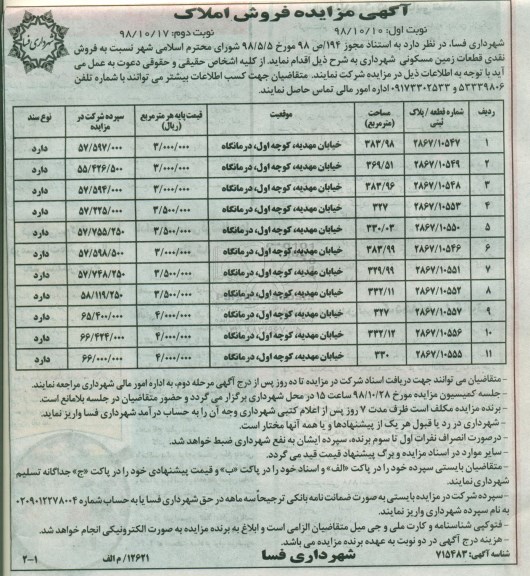 آگهی مزایده فروش املاک
نوبت اول: ۹۸/۱۰/۱۰ نوبت دوم: ۹۸/۱۰/۱۷
شهرداری فسا
شهرداری فسا، در نظر دارد به استناد مجوز ۱۹۴/ص ۹۸ مورخ ۹۸/۵/۵ شورای محترم اسلامی شهر نسبت به فروش
نقدی قطعات زمین مسکونی شهرداری به شرح ذیل اقدام نماید. از کلیه اشخاص حقیقی و حقوقی دعوت به عمل می
آید با توجه به اطلاعات ذیل در مزایده شرکت نمایند. متقاضیان جهت کسب اطلاعات بیشتر می توانند با شماره تلفن
۵۳۳۳۹۸۰۶ و ۰۹۱۷۳۳۰۲۵۳۳ اداره امور مالی تماس حاصل نمایند.
ردیف شماره قطعه / پلاک ثبتی مساحت (مترمربع) موقعیت قیمت پایه هر مترمربع (ریال) سپرده شرکت در مزایده نوع سند
۱ ۲۸۶۷/۱۰۵۴۷ ۳۸۳/۹۸ خیابان مهدیه، کوچه اول، درمانگاه ۳/۰۰۰/۰۰۰ ۵۷/۵۹۷/۰۰۰ دارد
۲ ۲۸۶۷/۱۰۵۴۹ ۳۶۹/۵۱ خیابان مهدیه، کوچه اول، درمانگاه ۳/۰۰۰/۰۰۰ ۵۵/۴۲۶/۵۰۰ دارد
۳ ۲۸۶۷/۱۰۵۴۸ ۳۸۳/۹۶ خیابان مهدیه، کوچه اول، درمانگاه ۳/۰۰۰/۰۰۰ ۵۷/۵۹۴/۰۰۰ دارد
۴ ۲۸۶۷/۱۰۵۵۳ ۳۲۷ خیابان مهدیه، کوچه اول، درمانگاه ۳/۵۰۰/۰۰۰ ۵۷/۲۲۵/۰۰۰ دارد
۵ ۲۸۶۷/۱۰۵۵۰ ۳۳۰/۰۳ خیابان مهدیه، کوچه اول، درمانگاه ۳/۵۰۰/۰۰۰ ۵۷/۷۵۵/۲۵۰ دارد
۶ ۲۸۶۷/۱۰۵۴۶ ۳۸۳/۹۹ خیابان مهدیه، کوچه اول، درمانگاه ۳/۰۰۰/۰۰۰ ۵۷/۵۹۸/۵۰۰ دارد
۷ ۲۸۶۷/۱۰۵۵۱ ۳۲۹/۹۹ خیابان مهدیه، کوچه اول، درمانگاه ۳/۵۰۰/۰۰۰ ۵۷/۷۴۸/۲۵۰ دارد
۸ ۲۸۶۷/۱۰۵۵۲ ۳۳۲/۱۱ خیابان مهدیه، کوچه اول، درمانگاه ۳/۵۰۰/۰۰۰ ۵۸/۱۱۹/۲۵۰ دارد
۹ ۲۸۶۷/۱۰۵۵۷ ۳۲۷ خیابان مهدیه، کوچه اول، درمانگاه ۴/۰۰۰/۰۰۰ ۶۵/۴۰۰/۰۰۰ دارد
۱۰ ۲۸۶۷/۱۰۵۵۶ ۳۳۲/۱۲ خیابان مهدیه، کوچه اول، درمانگاه ۴/۰۰۰/۰۰۰ ۶۶/۴۲۴/۰۰۰ دارد
۱۱ ۲۸۶۷/۱۰۵۵۵ ۳۳۰ خیابان مهدیه، کوچه اول، درمانگاه ۴/۰۰۰/۰۰۰ ۶۶/۰۰۰/۰۰۰ دارد
- متقاضیان می توانند جهت دریافت اسناد شرکت در مزایده تا ده روز پس از درج آگهی مرحله دوم، به اداره امور مالی شهرداری مراجعه نمایند.
- جلسه کمیسیون مزایده مورخ ۹۸/۱۰/۲۸ ساعت ۱۵ در محل شهرداری برگزار می گردد و حضور متقاضیان در جلسه بلامانع است.
- برنده مزایده مکلف است ظرف مدت ۷ روز پس از اعلام کتبی شهرداری وجه آن را به حساب درآمد شهرداری فسا واریز نماید.
- شهرداری در رد یا قبول هر یک از پیشنهادها و یا همه آنها مختار است.
- در صورت انصراف نفرات اول تا سوم برنده، سپرده ایشان به نفع شهرداری ضبط خواهد شد.
- سایر موارد در اسناد مزایده و برگ پیشنهاد قیمت قید می گردد.
- متقاضیان بایستی سپرده خود را در پاکت «الف» و اسناد خود را در پاکت «ب» و قیمت پیشنهادی خود را در پاکت «ج» جداگانه تسلیم
شهرداری نمایند.
- سپرده شرکت در مزایده بایستی به صورت ضمانت نامه بانکی ترجیحاً سه ماهه در حق شهرداری فسا یا به حساب شماره ۰۲۰۹۰۱۲۲۷۸۰۰۴
به نام سپرده شهرداری واریز نمایند.
- فتوکپی شناسنامه و کارت ملی و جی میل متقاضیان الزامی است و ابلاغ به برنده مزایده به صورت الکترونیکی انجام خواهد شد.
- هزینه درج آگهی در دو نوبت به عهده برنده مزایده می باشد.
شناسه آگهی: ۷۱۵۴۸۳ شهرداری فسا ۱۲۶۲۱/م الف ۲-۱